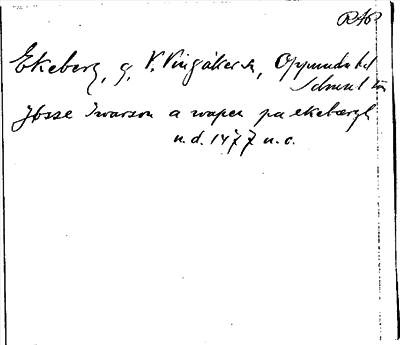 RAP
Ekeberg, g, V. Vingåkers sn, Oppunda hd
Sdmnl. län
Jösse Iwarson a wapen pa ekebærgh
u. d. 1477 u. o.